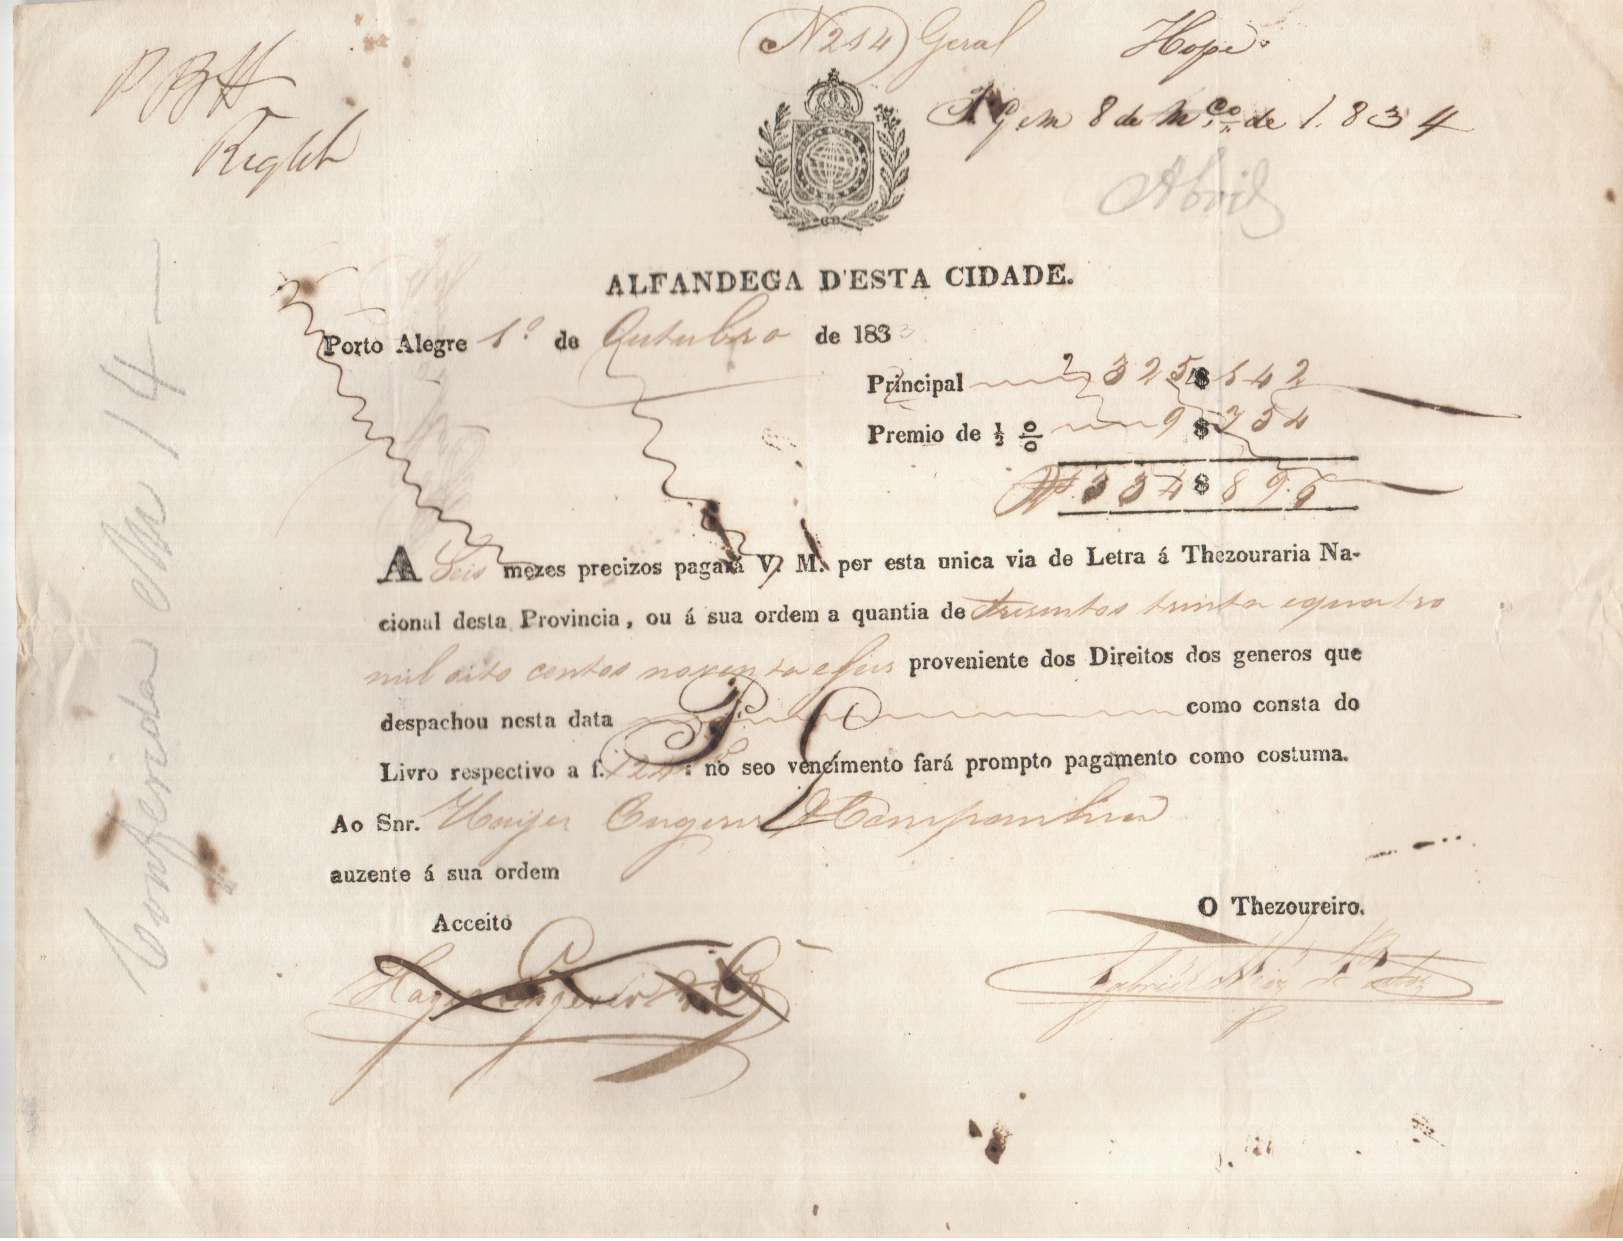 N 214 Geral
Hope
P B H
Pg. em 8 de M.ço de 1.834
Abril
ALFANDEGA D'ESTA CIDADE.
Porto Alegre 1º de Outubro de 1833
Principal 325$142
Premio de ½ 0/0 9$754
334$896
A Seis mezes precizos pagará V. M. por esta unica via de Letra á Thezouraria Na-
cional desta Provincia, ou á sua ordem a quantia de tresentos trinta equatro
mil oito centos noventa eseis proveniente dos Direitos dos generos que
despachou nesta data como consta do
Livro respectivo a f. : no seo vencimento fará prompto pagamento como costuma.
Ao Snr. Companhia
auzente á sua ordem
Acceito
O Thezoureiro.
Conferida 14